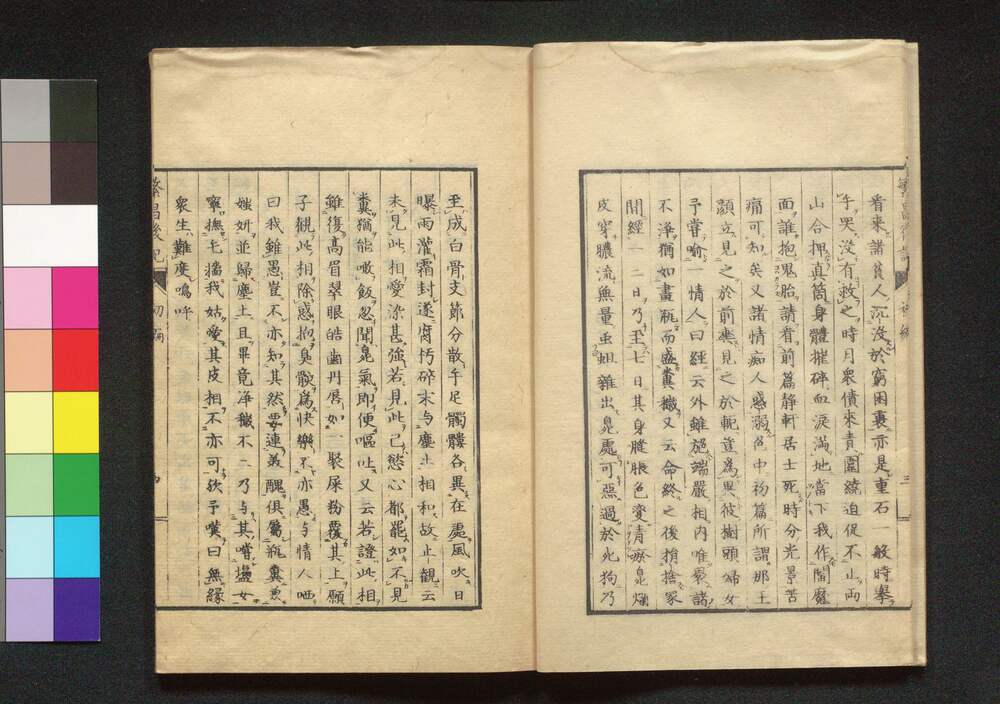 看來諸貧人沉没於窮困裏亦是重石一般時擧
手哭没有救之時月衆債來責圍繞迫促不止両
山合押真箇身體摧碎血淚満地當下我作閻魔
面誰抱鬼胎請看前篇静軒居士死時分光景苦
痛可知矣又諸情痴人惑溺色中初篇所謂那王
顏立見之於前樂見之於軛豈爲異彼樹頭婦女
予嘗喻一情人曰經云外雖施端嚴相内唯裹諸
不淨猶如畫瓶而盛糞穢又云命終之後捐捨冢
間經一二日乃至七日其身膖脹色變青瘀臭爛
皮穿膿流無量虫蛆雜出臭處可惡過於死狗乃
至成白骨支節分散手足髑髏各異在處風吹日
曝雨灌霜封遂腐朽碎末与塵土相和故止観云
未見此相愛染甚強若見此已慾心都罷如不見
糞猶能噉飯忽聞臭氣即便嘔吐又云若證此相
雖復高眉翠眼皓齒丹唇如一聚屎粉覆其上願
子観此相除惑抱臭骸爲快樂不亦愚与情人哂
曰我雖愚豈不亦知其然要連美醜俱屬瓶糞蒹
媸妍並歸塵土且畢竟净穢不二乃与其嘗塩女
寧撫毛嬙我姑愛其皮相不亦可欤予嘆曰無縁
衆生難度嗚呼
繁昌後記
初編